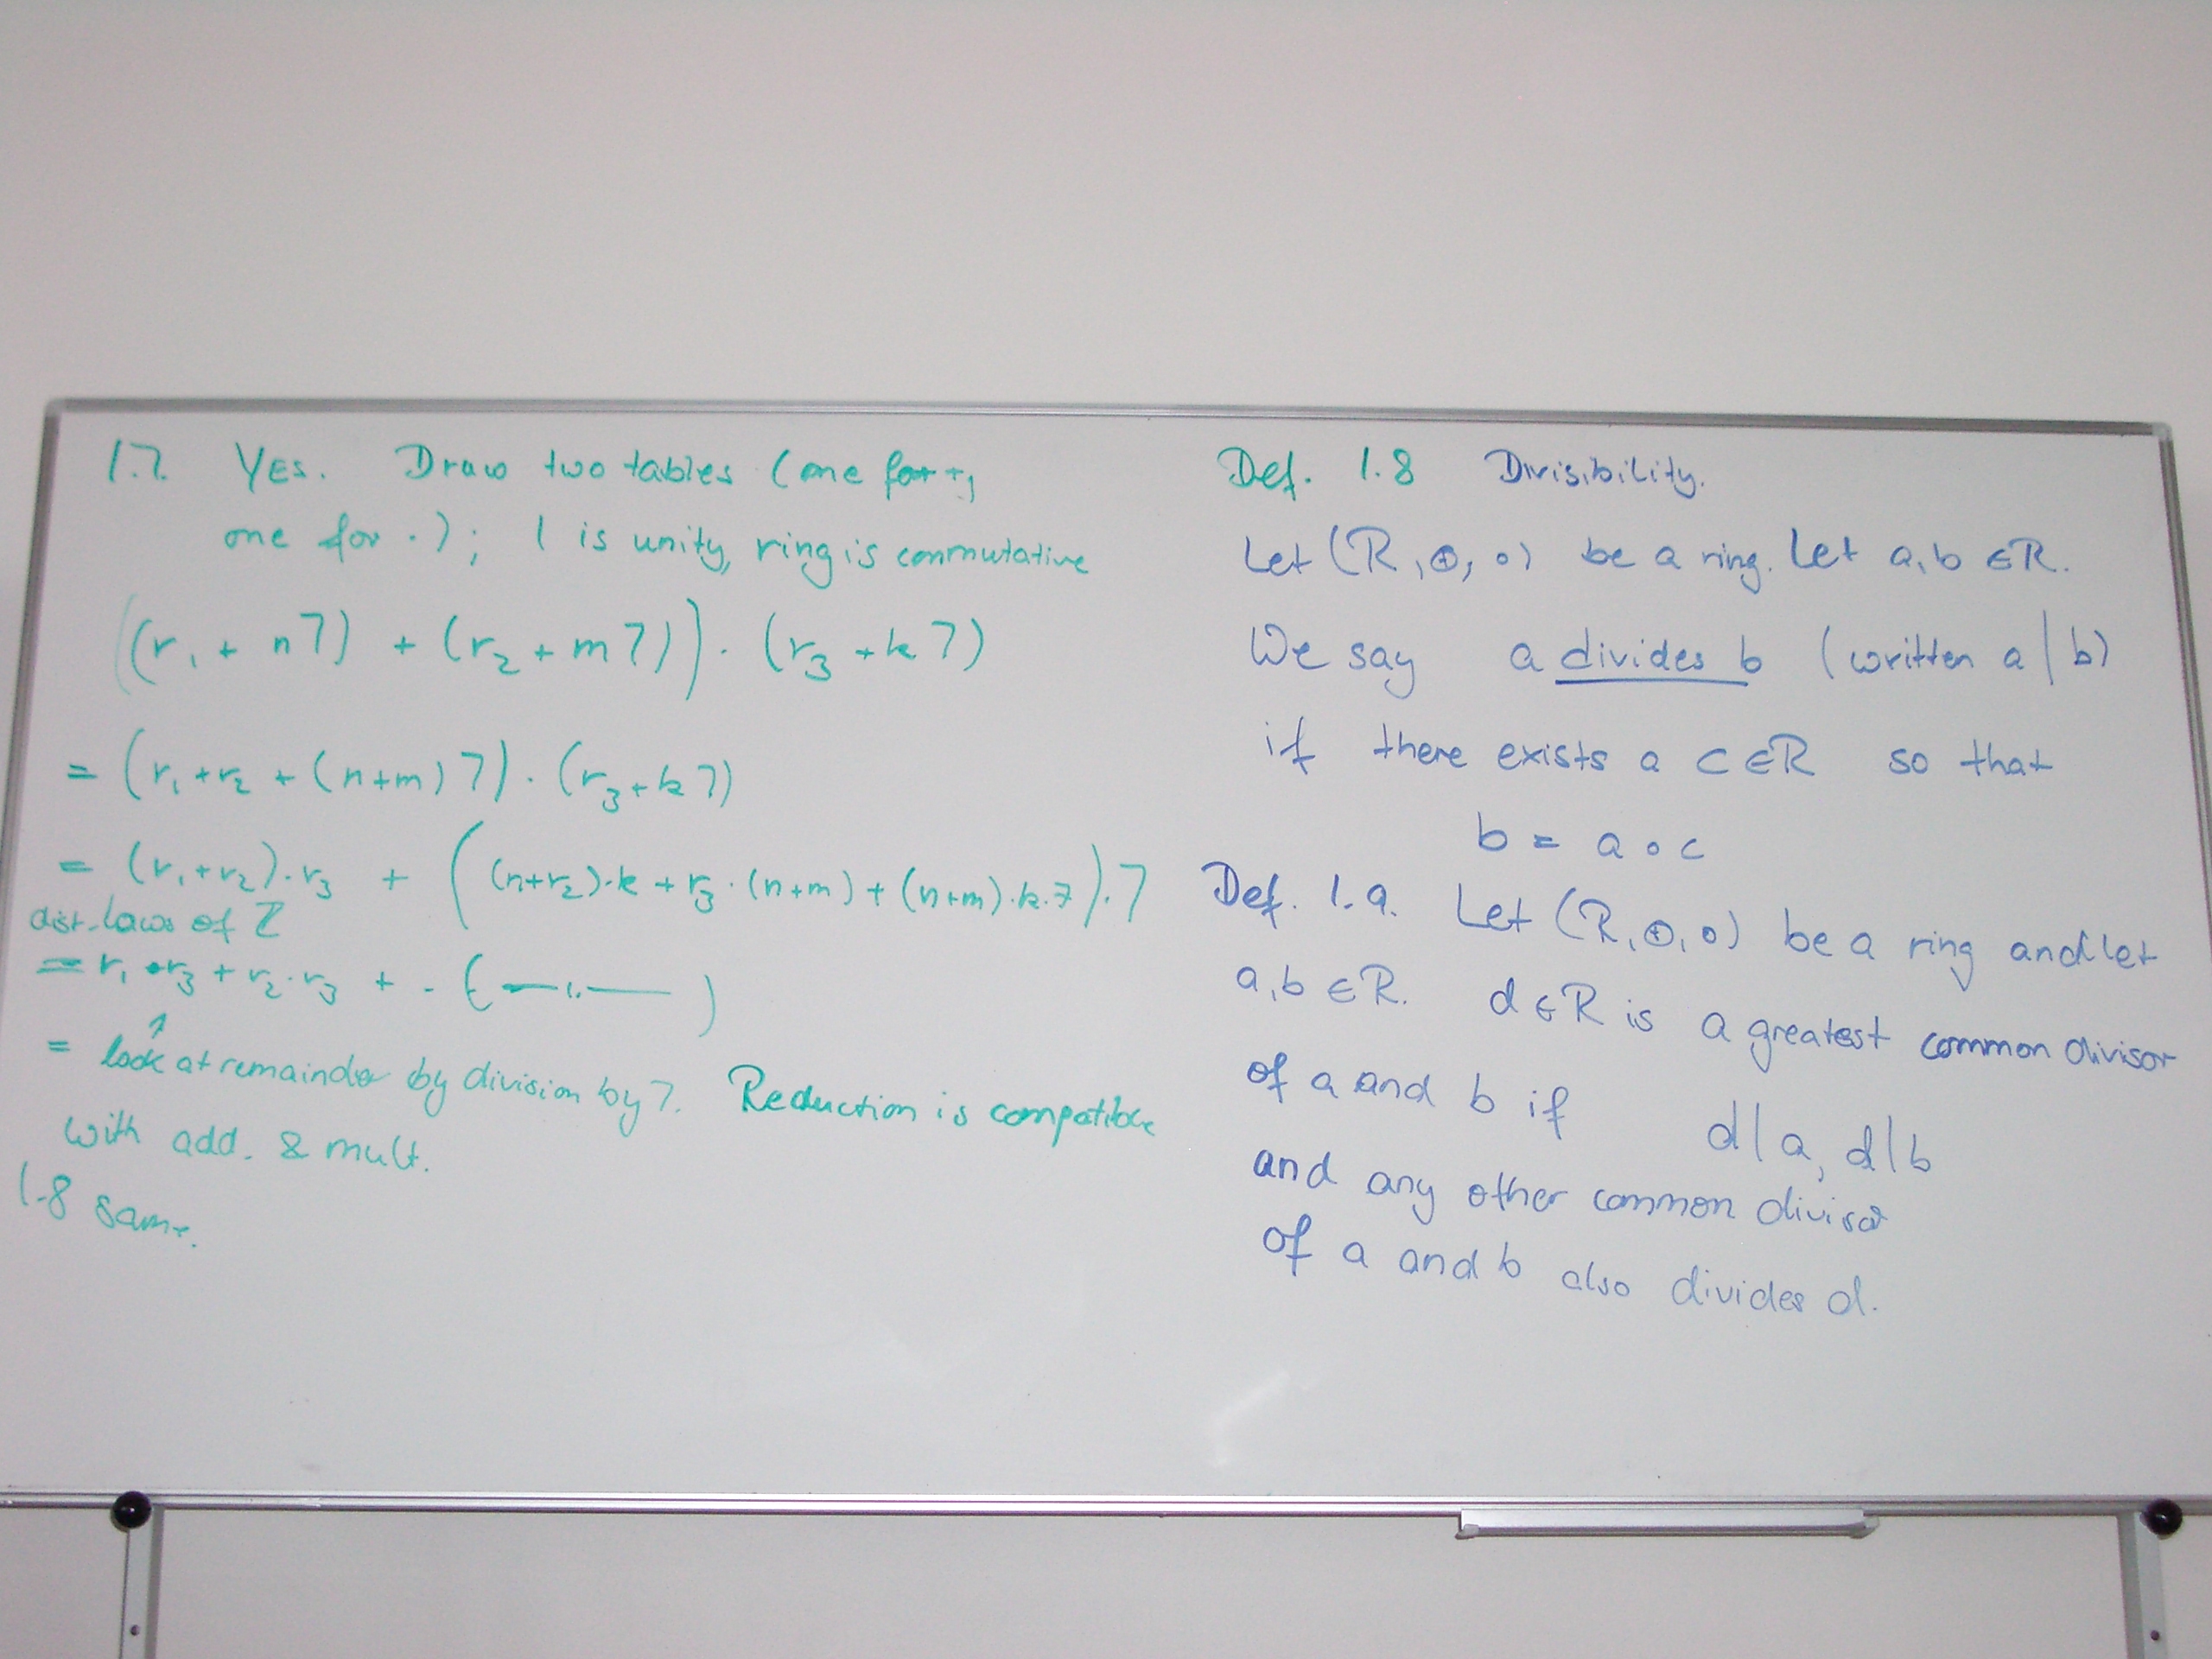 1.7. YES. Draw two tables (one for +,
one for ·); 1 is unity, ring is commutative
((r₁ + n7) + (r₂ + m7)) · (r₃ + k7)
= (r₁+r₂ + (n+m)7) · (r₃+k7)
= (r₁+r₂)·r₃ + ((n+r₂)·k + r₃·(n+m) + (n+m)·k·7)·7
dist. laws of Z
= r₁·r₃ + r₂·r₃ + - (—〃—)
↑
= look at remainder by division by 7. Reduction is compatible
with add. & mult.
1.8 same.
Def. 1.8 Divisibility.
Let (R, ⊕, ∘) be a ring. Let a, b ∈ R.
We say a divides b (written a | b)
if there exists a c ∈ R so that
b = a ∘ c
Def. 1.9. Let (R, ⊕, ∘) be a ring and let
a, b ∈ R. d ∈ R is a greatest common divisor
of a and b if d|a, d|b
and any other common divisor
of a and b also divides d.